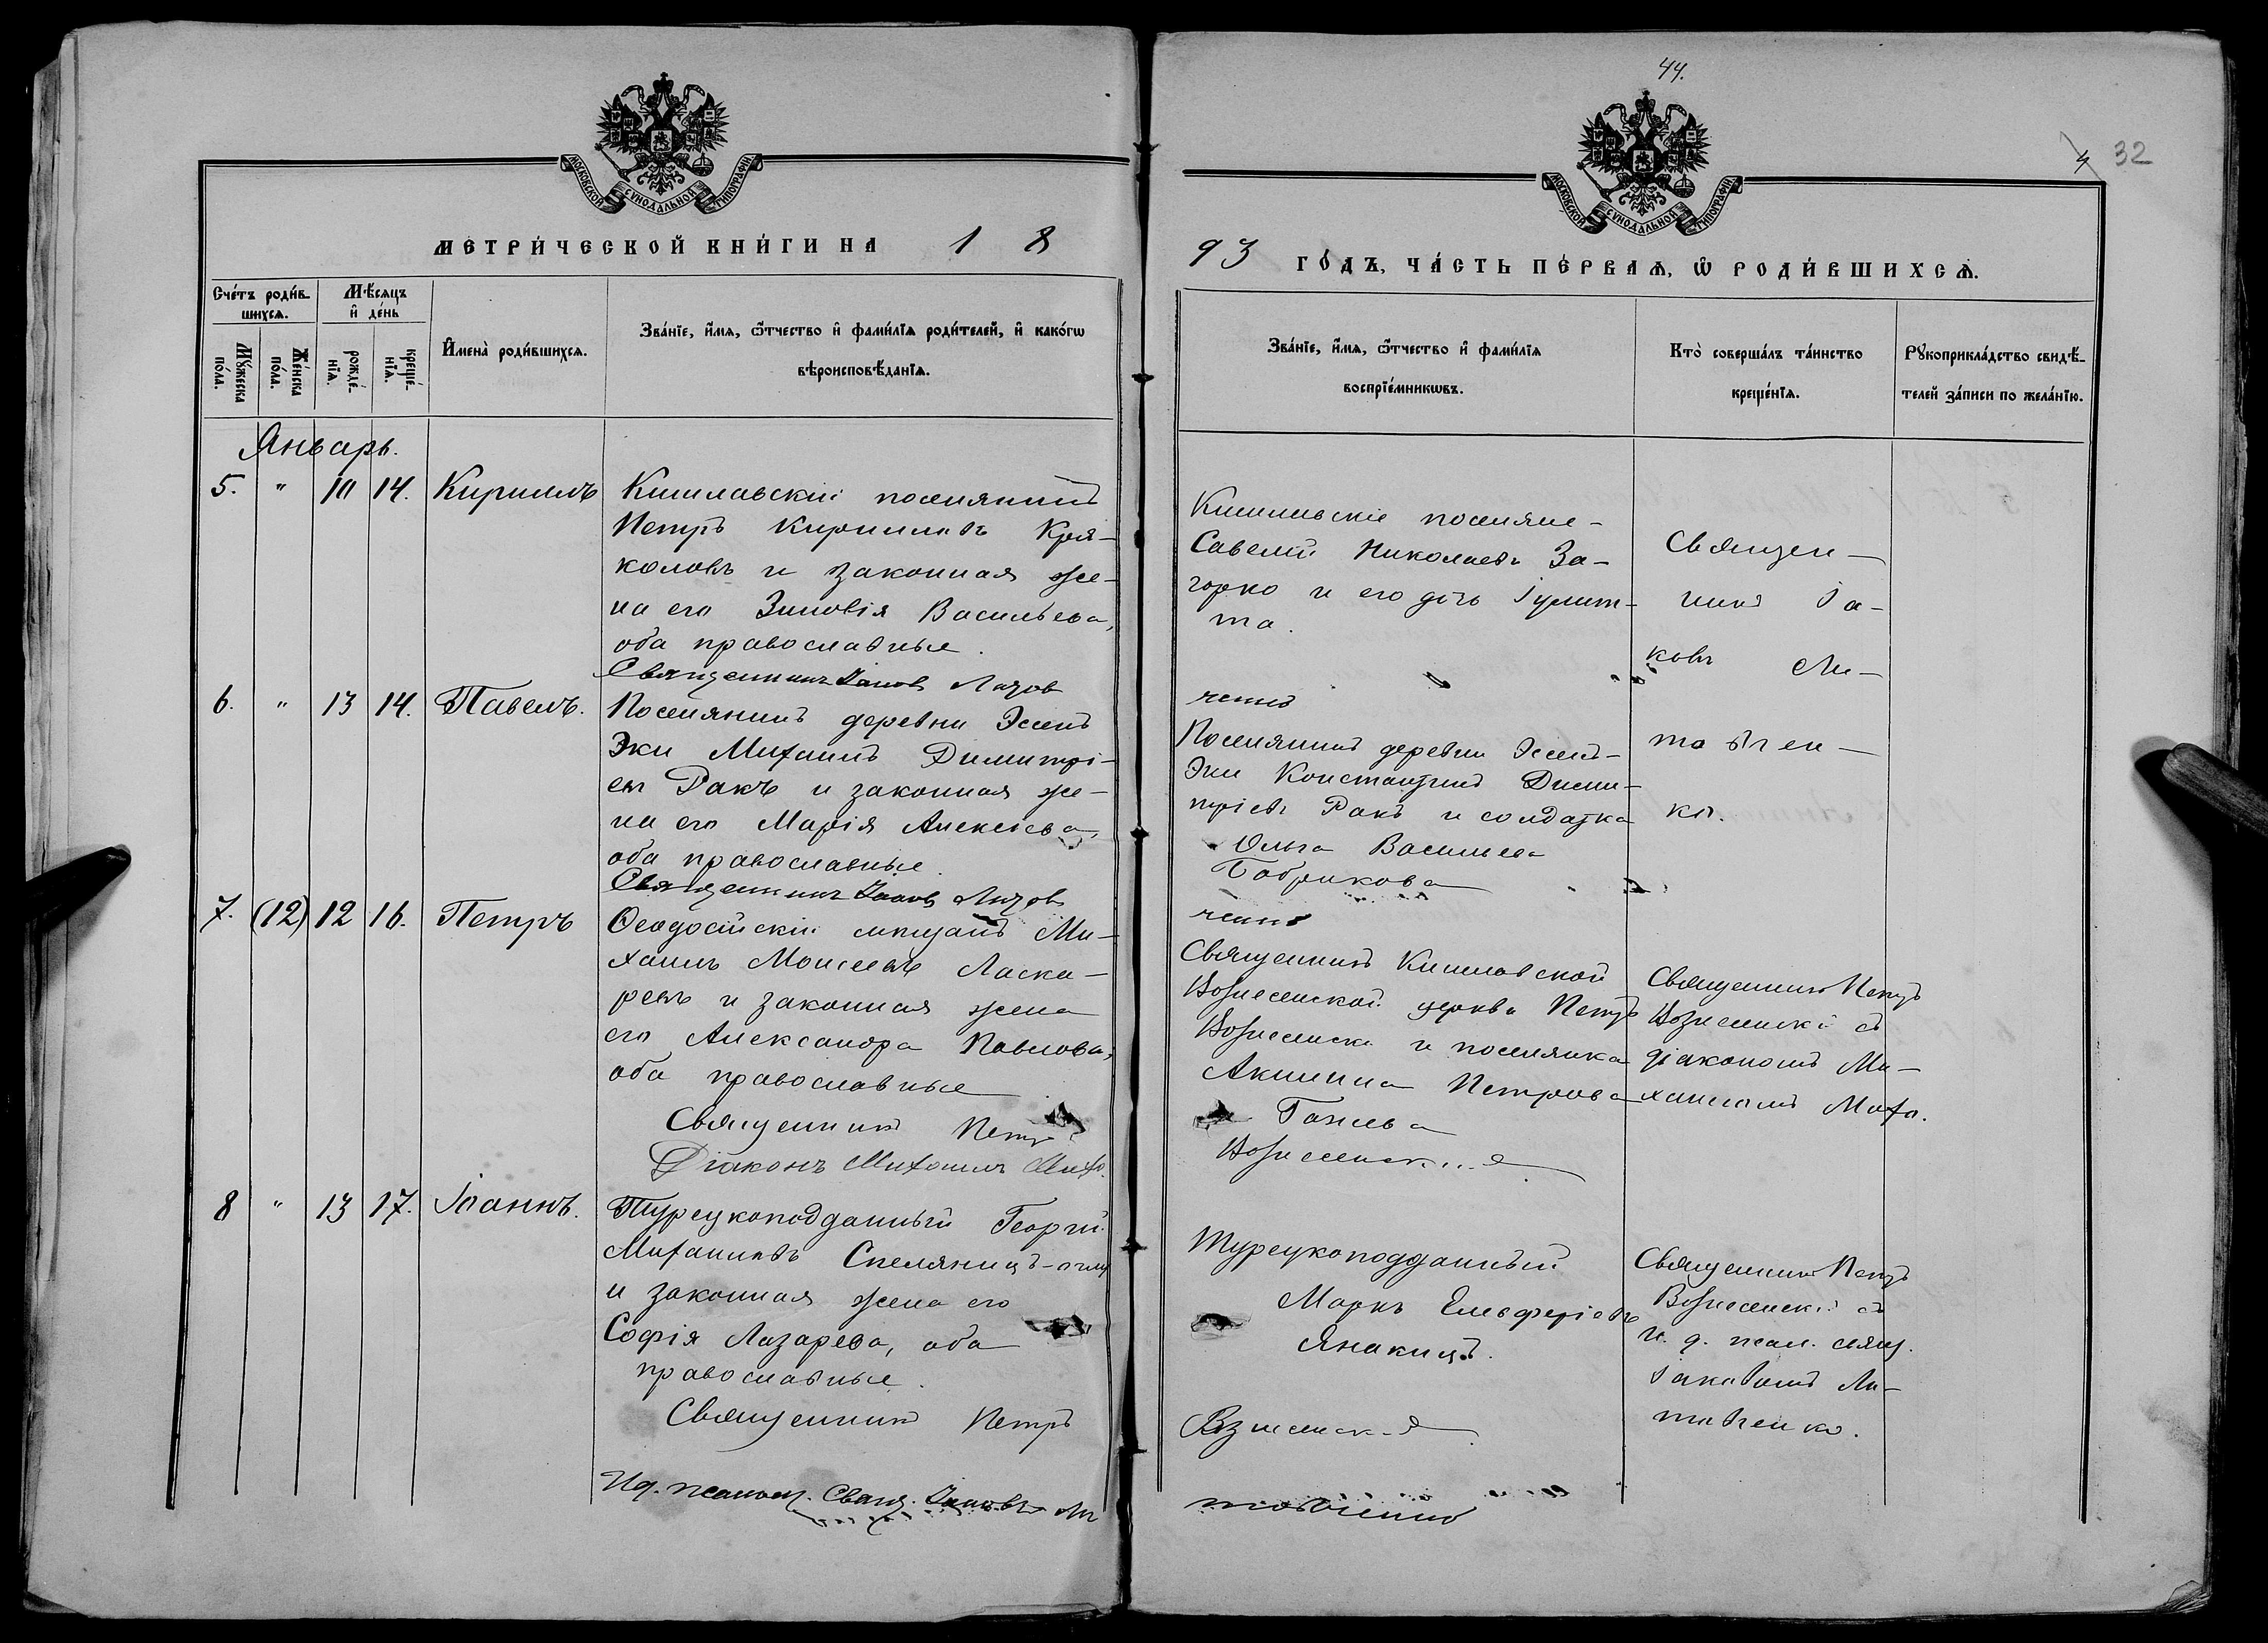 44.
4 32
МОСКОВСКОЙ СѴНОДАЛЬНОЙ ТИПОГРАФІИ
МОСКОВСКОЙ СѴНОДАЛЬНОЙ ТИПОГРАФІИ
МЕТРИ́ЧЕСКОЙ КНИ́ГИ НА 1 8
93 ГО́ДЪ, ЧА́СТЬ ПЕ́РВАЯ, Ѡ РОДИ́ВШИХСЯ.
Сче́тъ роди́в-
шихся.
Мѣ́сяцъ
и҆ де́нь
Мꙋ́жеска
по́ла.
Же́нска
по́ла.
рожде́-
нїя.
креще́-
нїя.
И҆мена̀ роди́вшихся.
Зва́нїе, и҆́мя, ѻ҆́тчество и҆ фами́лїя роди́телей, и҆ како́гѡ
вѣроисповѣ́данїя.
Зва́нїе, и҆́мя, ѻ҆́тчество и҆ фами́лїя
воспрїе́мникѡвъ.
Кто̀ соверша́лъ та́инство
креще́нїя.
Рꙋкоприкла́дство свидѣ́-
телей за́писи по жела́нїю.
Январь.
5. " 10 14. Кириллъ
Кишлавскій поселянинъ
Петръ Кирилловъ
коловъ и законная же-
на его Зиновія Васильева,
оба православные.
Священникъ Іаковъ
Кишлавскіе поселяне-
Савелій Николаевъ За-
горко и его дочь Іулит-
та.
Священ-
никъ Іа-
ковъ Ли-
товчен-
ко.
6. " 13 14. Павелъ.
Поселянинъ деревни Эссенъ
Эки Михаилъ Димитрі-
евъ Ракъ и законная же-
на его Марія Алексіева,
оба православные.
Священникъ Іаковъ
ченко
Поселянинъ деревни Эссенъ-
Эки Константинъ Дими-
тріевъ Ракъ и солдатка
Ольга Васильева
Бобрикова
7. (12) 12 16. Петръ
Ѳеодосійскій мѣщанъ Ми-
хаилъ Моисеевъ Ласка-
ревъ и законная жена
его Александра Павлова,
оба православные
Священникъ Петръ
Діаконъ Михаилъ
ченко
Священникъ Кишлавской
Вознесенской церкви Петръ
Вознесенскій и поселянка
Акилина Петрова
Вознесенскій
Священникъ Петръ
Вознесенскій съ
діакономъ Ми-
хаиломъ
8 " 13 17. Іоаннъ.
Турецкоподданный Георгій
Михаиловъ
и законная жена его
Софія Лазарева, оба
православные.
Священникъ Петръ
И.д. псаломщ. Свящ. Іаковъ Ли
Турецкоподданный
Маркъ Елевферіевъ
Вознесенскій
товченко
Священникъ Петръ
Вознесенскій съ
и. д. псал. свящ.
Іаковомъ Ли-
товченко.